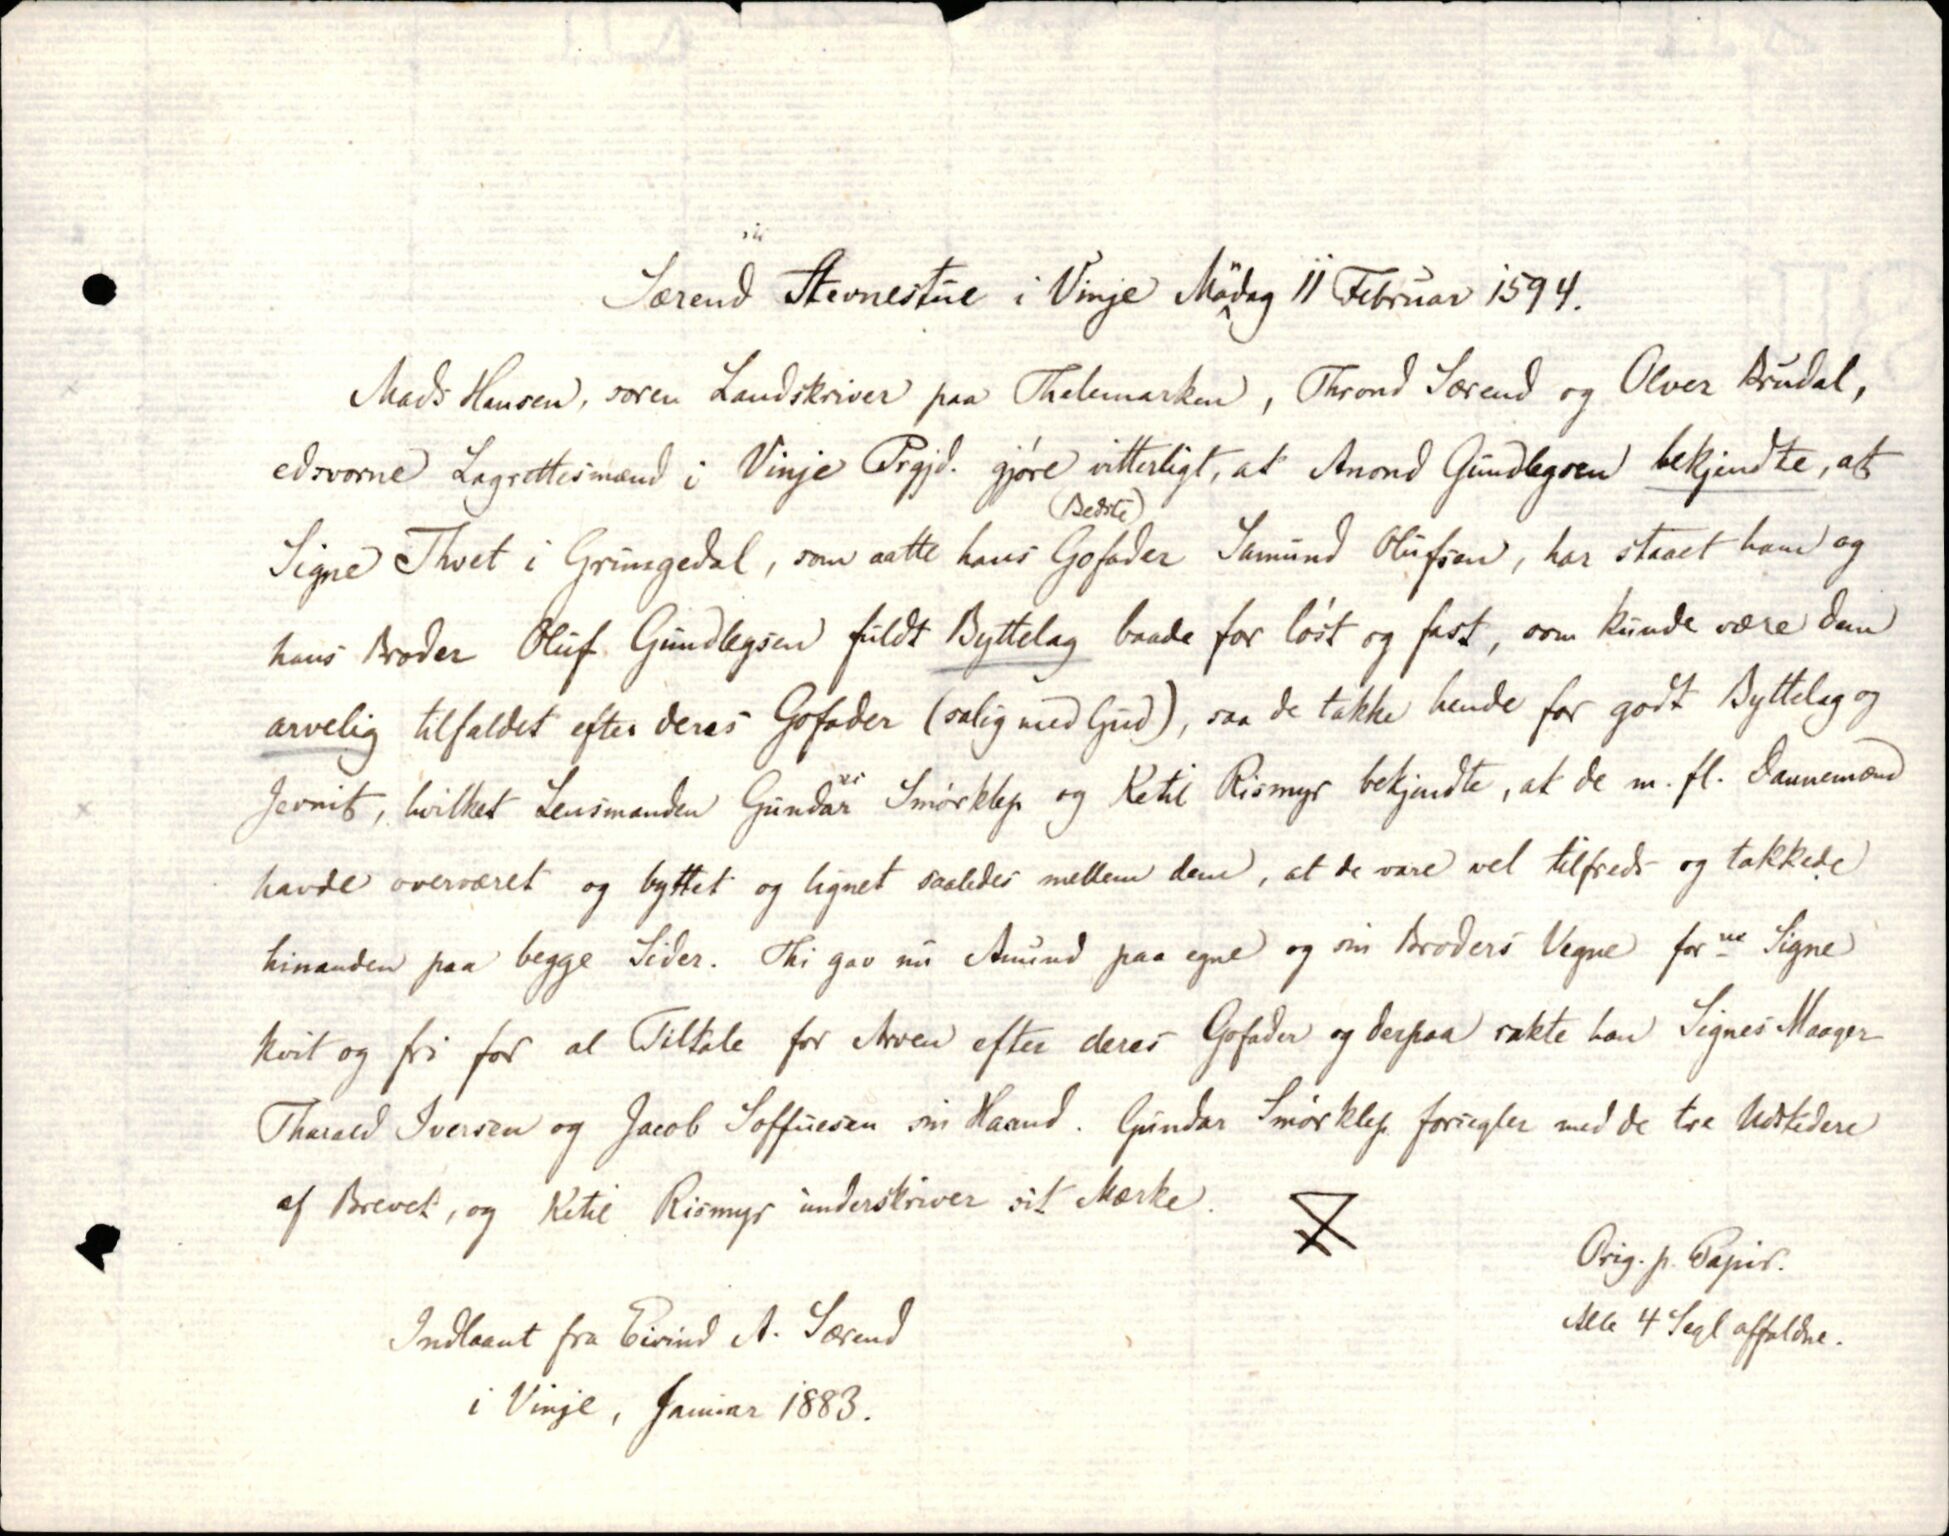 Særend Stevnestue i Vinje Mandag 11 Februar 1594.
Mads Hansen, soren Landskriver paa Thelemarken, Thrond Særend og Olver Brudal,
edsvorne Lagrettesmænd i Vinje Prgjd. gjøre vitterligt, at Anond Gundlegsen bekjendte, at
(Bedste)
Signe Thvet i Grungedal, som aatte hans Gofader Samund Olufsen, har staaet ham og
hans Broder Oluf Gundlegsen fuldt Byttelag baade for løst og fast, som kunde være dem
arvelig tilfaldet efter deres Gofader (salig med Gud), saa de takke hende for godt Byttelag og
Jevnit, hvilket Lensmanden Gundar Smørklep og Ketil Rismyr bekjendte, at de m. fl. Dannemænd
havde overværet og byttet og lignet saaledes mellem dem, at de vare vel tilfreds og takkede
hinanden paa begge Sider. Thi gav nu Anund paa egne og sin Broders Vegne forne Signe
kvit og fri for al Tiltale for Arven efter deres Gofader og derpaa rakte han Signes Maager
Tharald Iversen og Jacob Soffuesen sin Haand. Gundar Smørklep forsegler med de tre Udstedere
af Brevet, og Ketil Rismyr underskriver sit Mærke.
Orig. p. Papir.
Alle 4 Segl affaldne.
Indlaant fra Eivind A. Særend
i Vinje, Januar 1883.